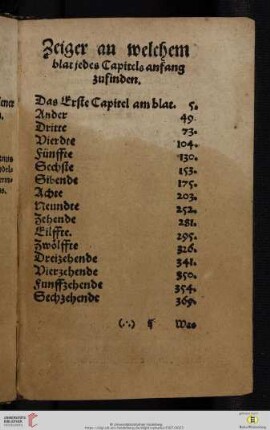 Zeiger an welchem
blat jedes Capitels anfang
zufinden.
Das Erste Capitel am blat. 5.
Ander 49.
Dritte 73.
Vierdte 104.
Fünffte 130.
Sechste 153.
Sibende 175.
Achte 203.
Neundte 252.
Zehende 281.
Eilffte. 295.
Zwölffte 326.
Dreizehende 341.
Vierzehende 350.
Funffzehende 354.
Sechzehende 369.
(∴) ¶ Was